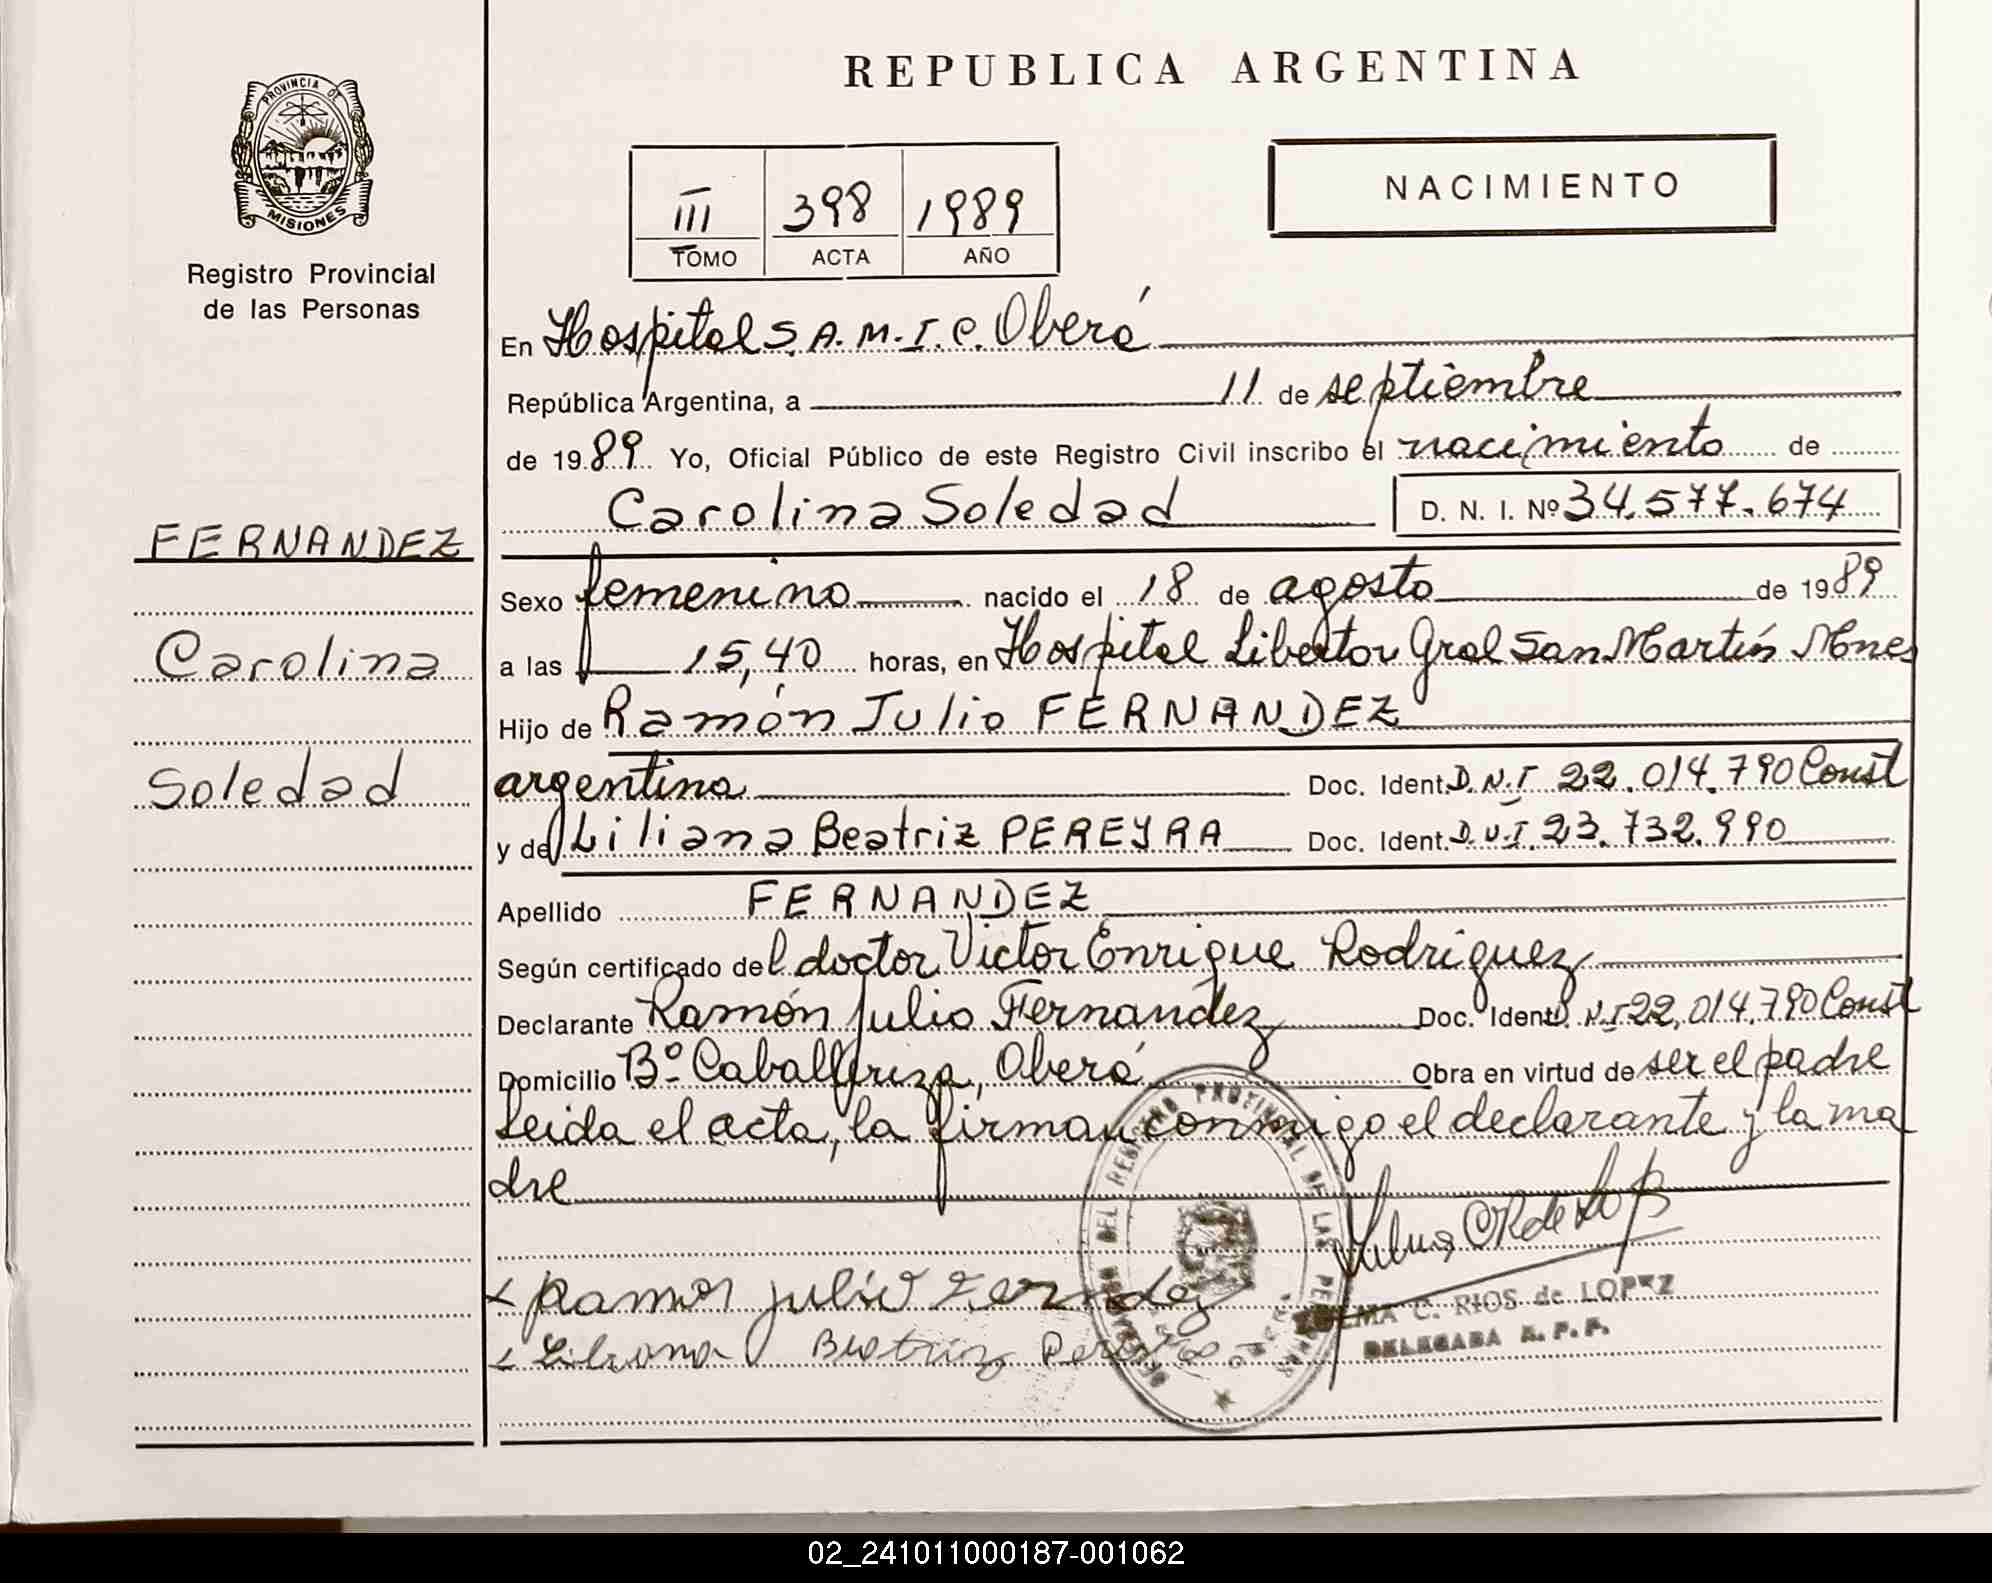 REPUBLICA ARGENTINA
PROVINCIA DE
MISIONES
Registro Provincial
de las Personas
III 398 1989
TOMO ACTA AÑO
NACIMIENTO
En Hospital S.A.M.I.C. Oberá
República Argentina, a 11 de septiembre
de 1989 Yo, Oficial Público de este Registro Civil inscribo el nacimiento de
Carolina Soledad D. N. I. Nº 34.577.674
FERNANDEZ
Carolina
Soledad
Sexo femenino nacido el 18 de agosto de 1989
a las 15,40 horas, en Hospital Libertor Gral San Martín Mnes
Hijo de Ramón Julio FERNANDEZ
argentina Doc. Ident. D.N.I 22.014.790 Const
y de Liliana Beatriz PEREYRA Doc. Ident. D.N.I. 23.732.990
Apellido FERNANDEZ
Según certificado del doctor Victor Enrique Rodriguez
Declarante Ramón Julio Fernandez Doc. Ident. D.N.I 22.014.790 Const
Domicilio Bº Caballeriza, Oberá Obra en virtud de ser el padre
Leida el acta, la firman conmigo el declarante y la ma
dre
DELEGACION DEL REGISTRO PROVINCIAL DE LAS PERSONAS
x Ramon Julio
x Liliana Beatriz
ZULMA C. RIOS de LOPEZ
DELEGADA R. P. P.
02_241011000187-001062